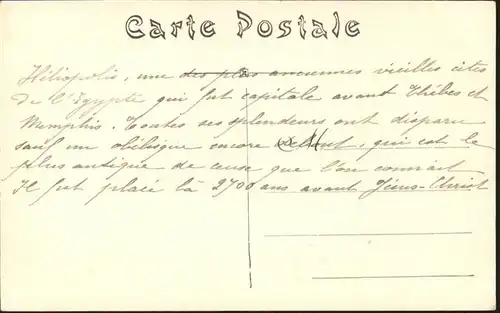 Carte Postale
Héliopolis, une des plus anciennes vieilles cités
de l'Egypte qui fut capitale avant Thèbes et
Memphis. Toutes ses splendeurs ont disparu
sauf un obélisque encore debout, qui est le
plus antique de ceux que l'on connait
Il fut placé là 2700 ans avant Jésus-Christ